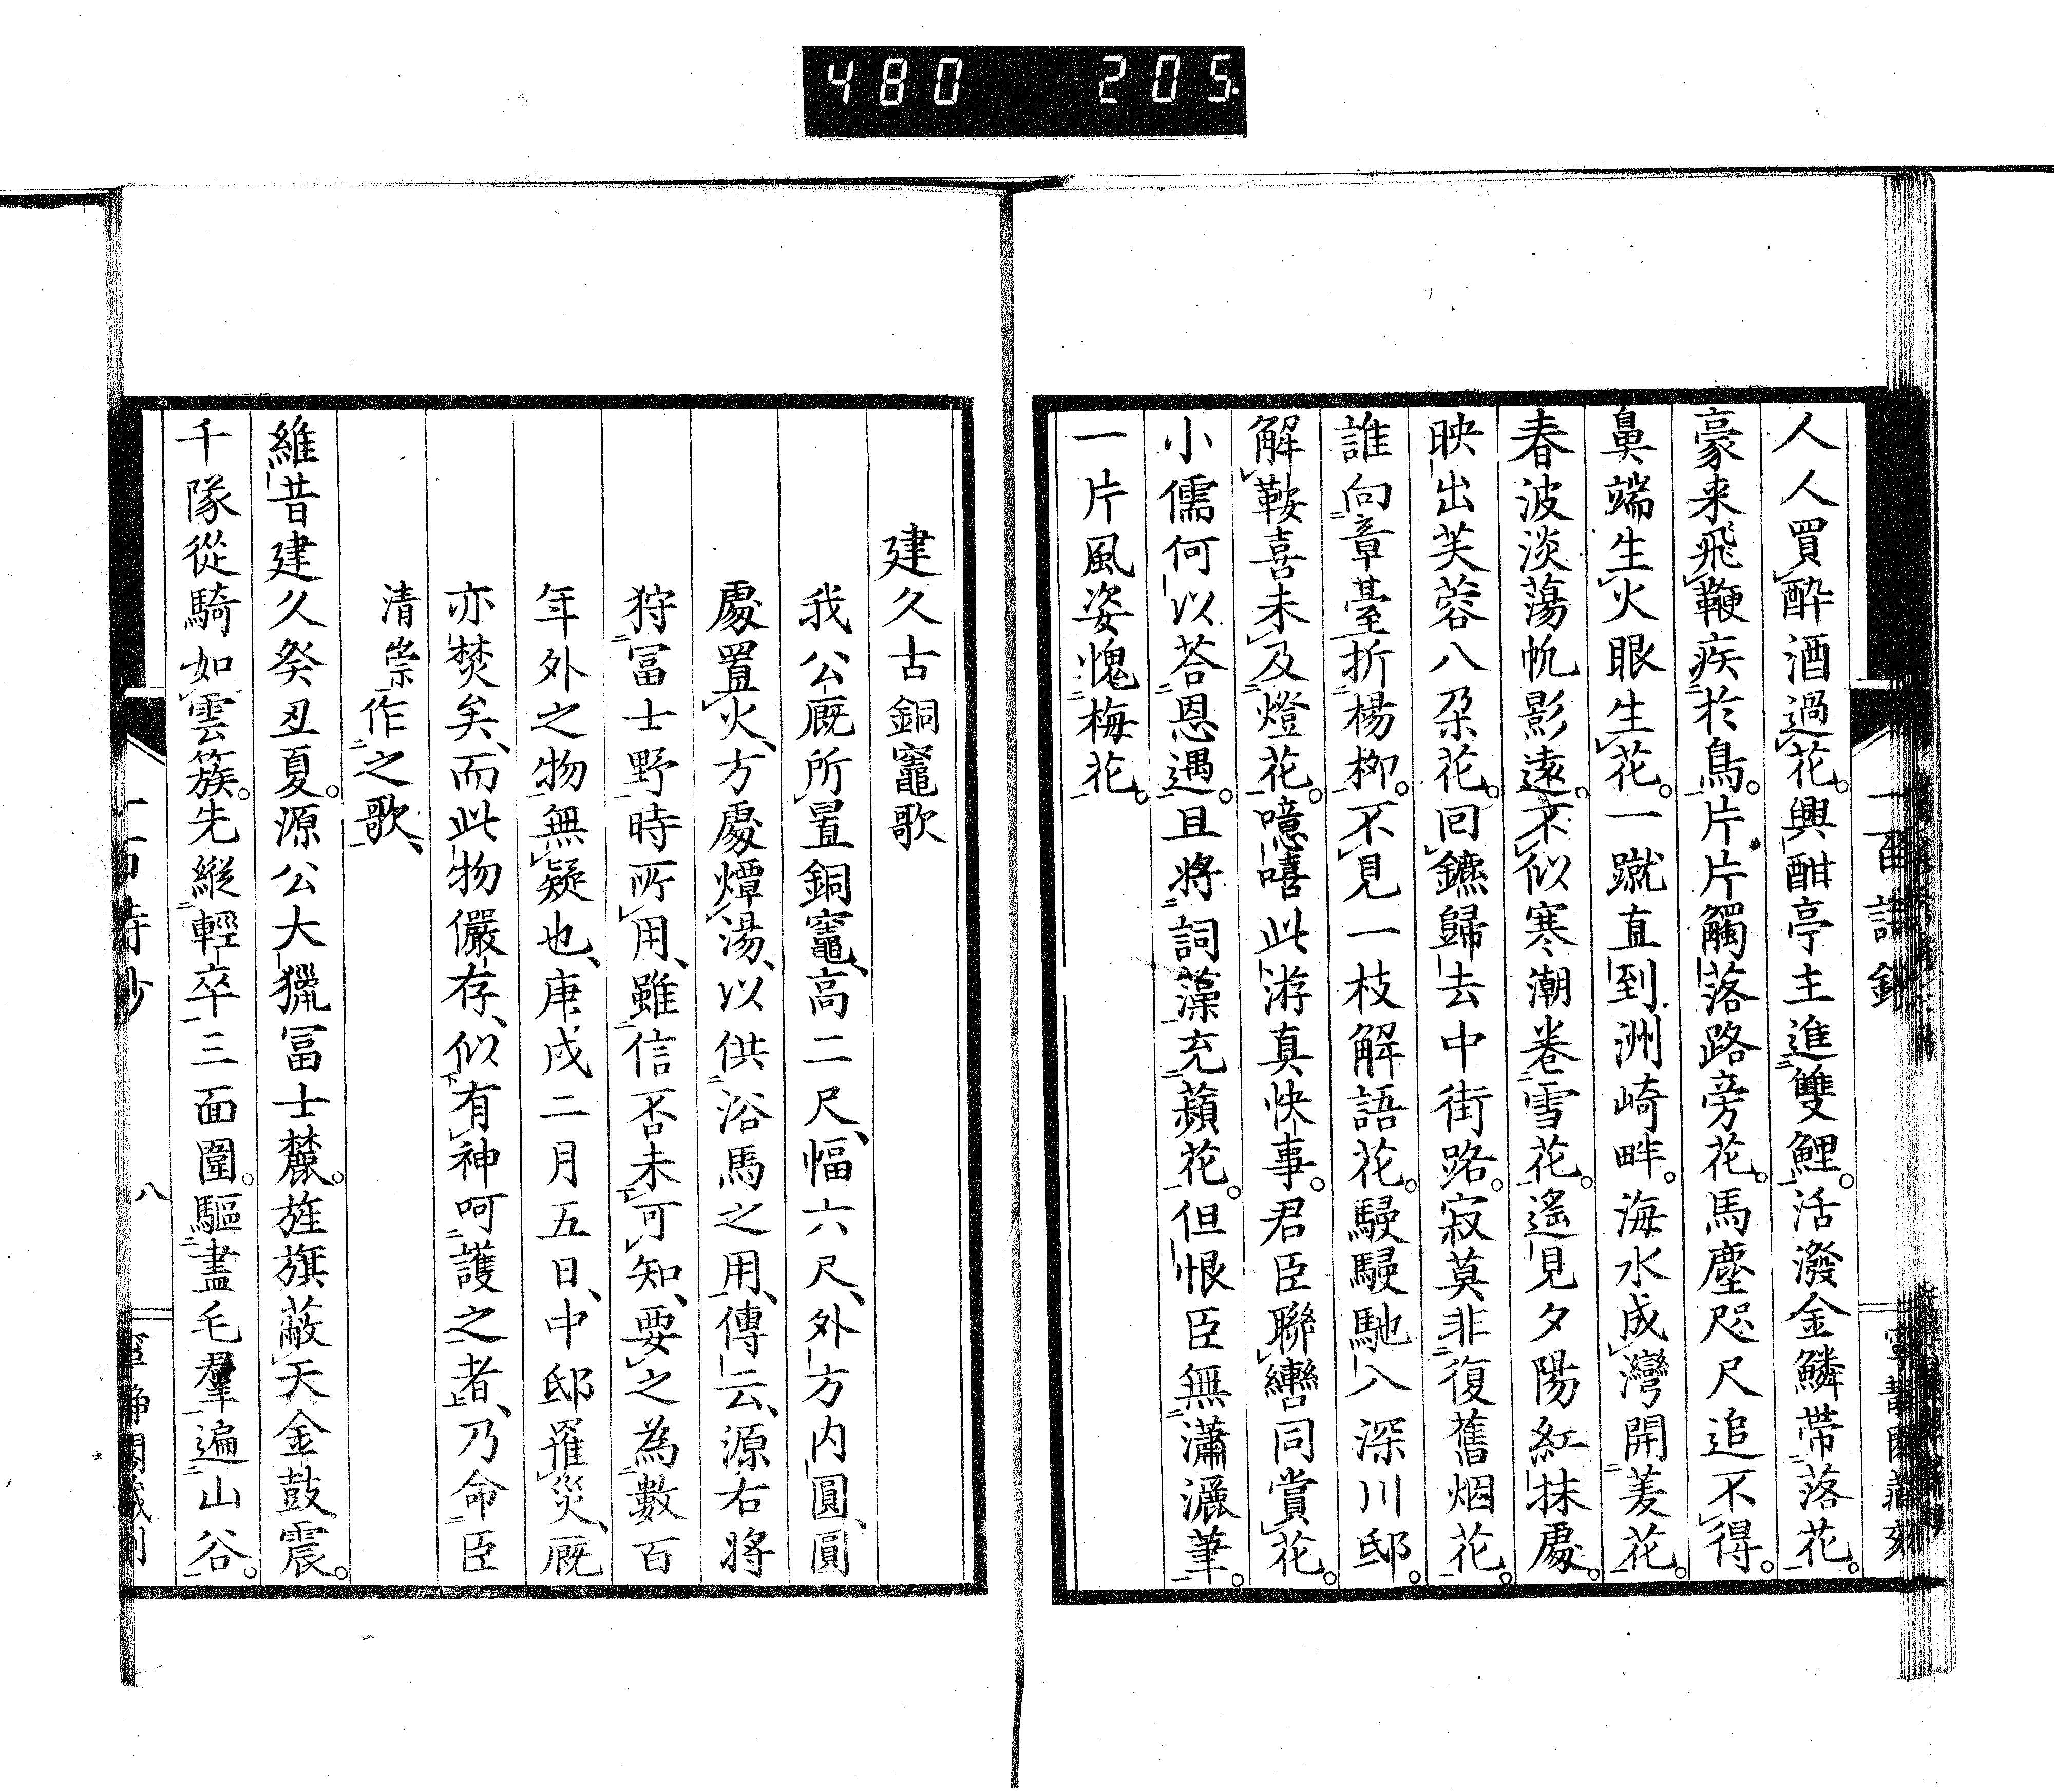 480 205.
人人買醉酒過花。興酣亭主進雙鯉。活潑金鱗帶落花。
豪来飛鞭疾於鳥。片片觸落路旁花。馬塵咫尺追不得。
鼻端生火眼生花。一蹴直到洲崎畔。海水成灣開菱花。
春波淡蕩帆影遠。不似寒潮卷雪花。遙見夕陽紅抹處。
映出芙蓉八朶花。回鑣歸去中街路。寂莫非復舊烟花。
誰向章臺折楊柳。不見一枝解語花。駸駸馳入深川邸。
解鞍喜未及燈花。噫嘻此游真快事。君臣聯轡同賞花。
小儒何以荅恩遇。且將詞藻充蘋花。但恨臣無瀟灑筆。
一片風姿愧梅花。
建久古銅竈歌
我公厩所置銅竈、高二尺、幅六尺、外方内圓、圓
處置火、方處燂湯、以供浴馬之用、傳云、源右將
狩冨士野時所用、雖信否未可知、要之為數百
年外之物無疑也、庚戌二月五日、中邸罹災、厩
亦焚矣、而此物儼存、似有神呵護之者、乃命臣
清崇作之歌、
維昔建久癸丑夏。源公大獵冨士麓。旌旗蔽天金鼓震。
千隊從騎如雲簇。先縱輕卒三面圍。驅盡毛羣遍山谷。
八